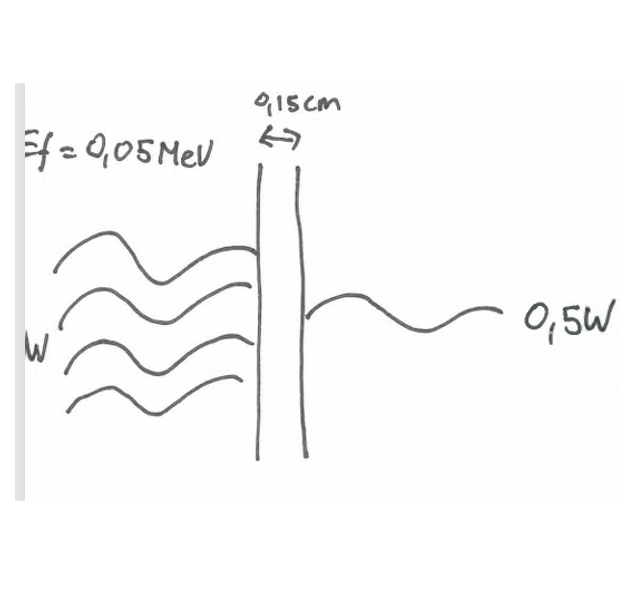 0,15cm
Ef = 0,05 MeV
W
0,5W